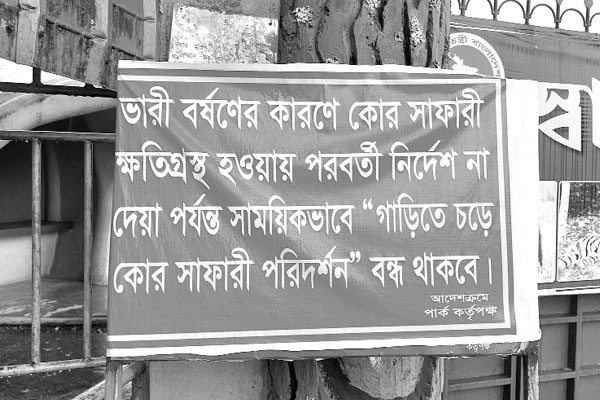 ভারী বর্ষণের কারণে কোর সাফারী
ক্ষতিগ্রস্থ হওয়ায় পরবর্তী নির্দেশ না
দেয়া পর্যন্ত সাময়িকভাবে “গাড়িতে চড়ে
কোর সাফারী পরিদর্শন” বন্ধ থাকবে।
আদেশক্রমে
পার্ক কর্তৃপক্ষ
কর্তৃপক্ষ
স্বা